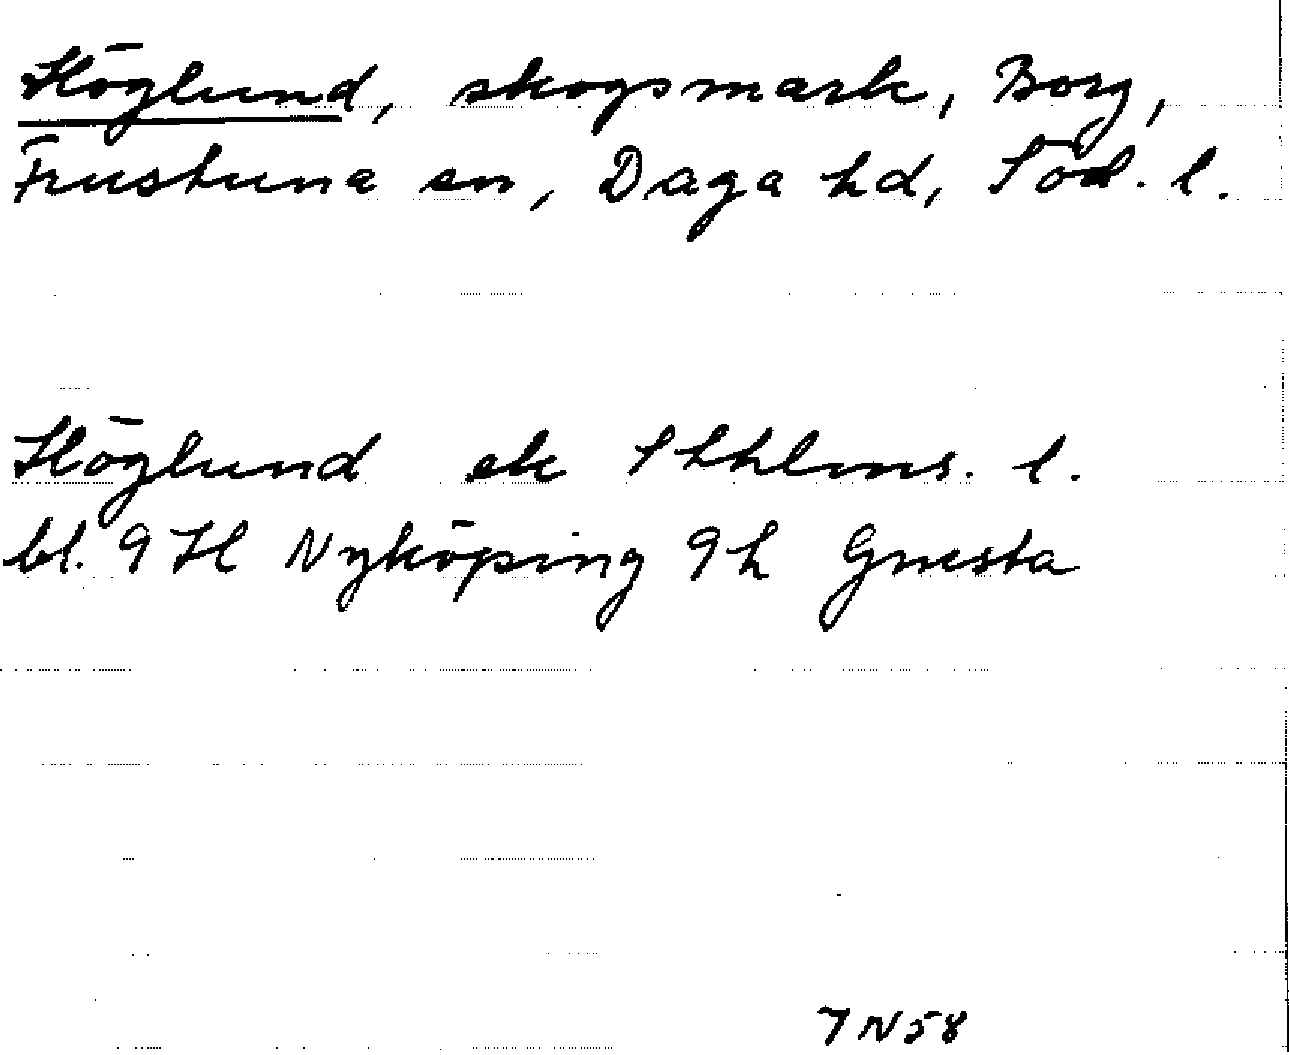 Höglund, skogsmark, Borg,
Frustuna sn, Daga hd, Söd. l.
Höglund ek Sthlms. l.
bl. 9 H Nyköping 9h Gnesta
7 N 58